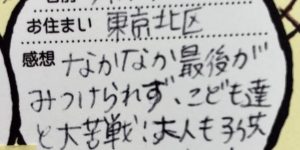 お住まい 東京北区
感想 なかなか最後が
みつけられず、こども達
と大苦戦!大人も